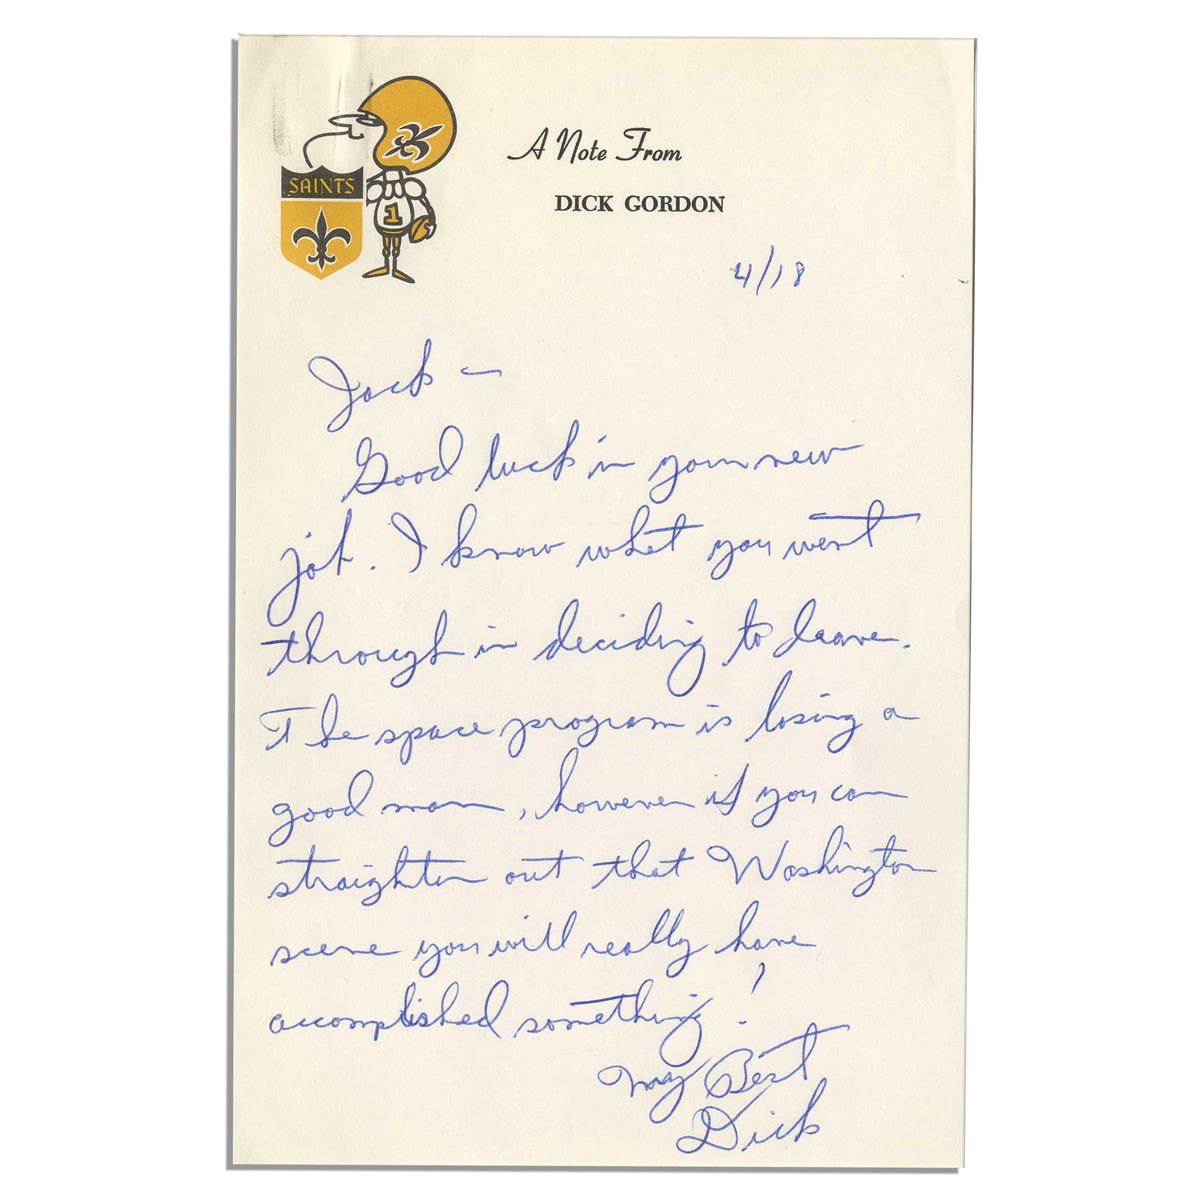 SAINTS
1
A Note From
DICK GORDON
4/18
Jack –
Good luck in your new
job. I know what you went
through in deciding to leave.
The space program is losing a
good man, however if you can
straighten out that Washington
scene you will really have
accomplished something!
My Best
Dick